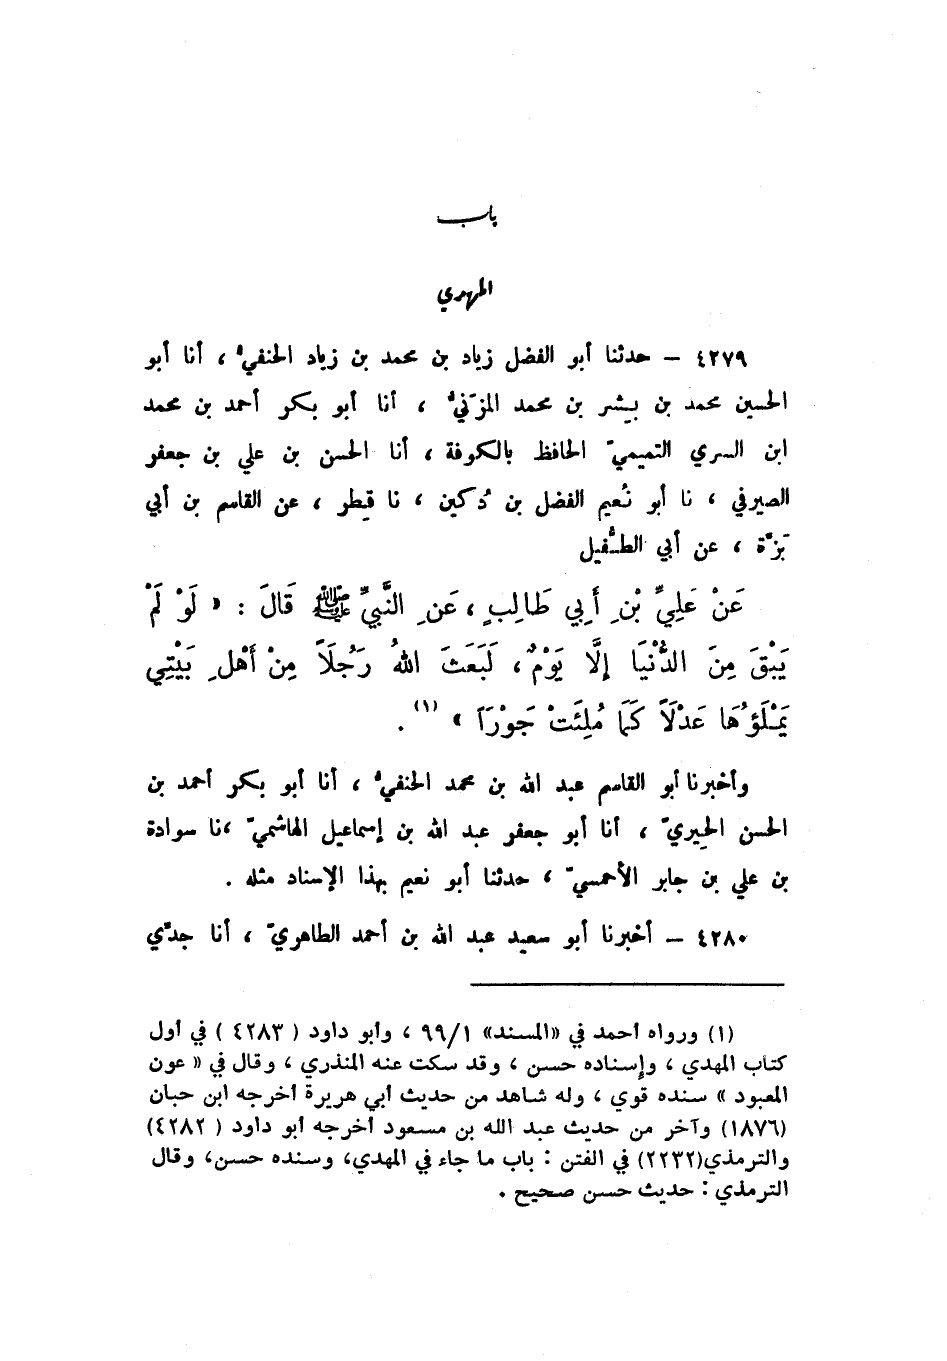 باب
المهدي
٤٢٧٩ – حدثنا أبو الفضل زياد بن محمد بن زياد الحنفيُّ ، أنا أبو
الحسين محمد بن بِشر بن محمد المزَنيُّ ، أنا أبو بكر أحمد بن محمد
ابن السري التميميّ الحافظ بالكوفة ، أنا الحسن بن علي بن جعفر
الصيرفي ، نا أبو نُعيم الفضل بن دُكين ، نا فِطر ، عن القاسم بن أبي
بَزَّة ، عن أبي الطُّفيل
عَنْ عَلِيِّ بْنِ أَبِي طَالِبٍ ، عَنِ النَّبِيِّ ﷺ قَالَ : « لَوْ لَمْ
يَبْقَ مِنَ الدُّنْيَا إِلَّا يَوْمٌ ، لَبَعَثَ اللهُ رَجُلَاً مِنْ أَهْلِ بَيْتِي
يَمْلَؤُهَا عَدْلَاً كَمَا مُلِئَتْ جَوْرَاً » (١) .
وأخبرنا أبو القاسم عبد الله بن محمد الحنفيُّ ، أنا أبو بكر أحمد بن
الحسن الحِيريّ ، أنا أبو جعفر عبد الله بن إسماعيل الهاشميّ ،نا سوادة
بن علي بن جابر الأحمسيّ ، حدثنا أبو نعيم بهذا الإسناد مثله .
٤٢٨٠ – أخبرنا أبو سعيد عبد الله بن أحمد الطاهريّ ، أنا جدّي
(١) ورواه أحمد في «المسند» ٩٩/١ ، وأبو داود ( ٤٢٨٣ ) في أول
كتاب المهدي ، وإسناده حسن ، وقد سكت عنه المنذري ، وقال في « عون
المعبود » سنده قوي ، وله شاهد من حديث أبي هريرة أخرجه ابن حبان
(١٨٧٦) وآخر من حديث عبد الله بن مسعود أخرجه أبو داود ( ٤٢٨٢)
والترمذي(٢٢٣٢) في الفتن : باب ما جاء في المهدي، وسنده حسن، وقال
الترمذي : حديث حسن صحيح .